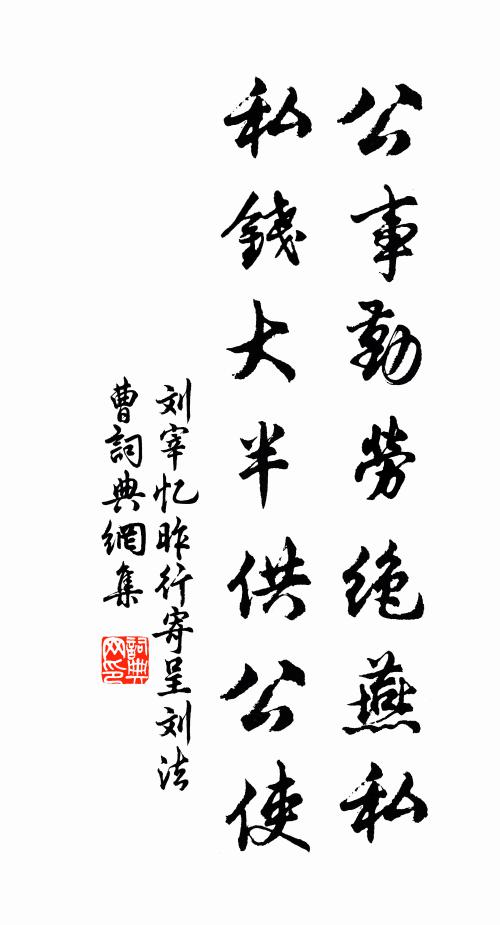 公事勤勞绝燕私
私錢大半供公使
刘宰忆昨行寄呈刘法
曹詞典網集
詞典
网印